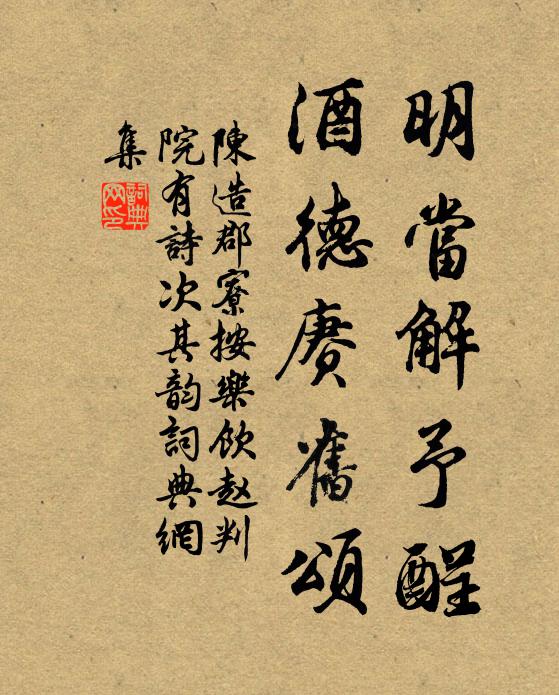 明當解予酲
酒德賡舊頌
陳造郡寮按樂飲赵判
院有詩次其韵詞典網
集
詞典
网印